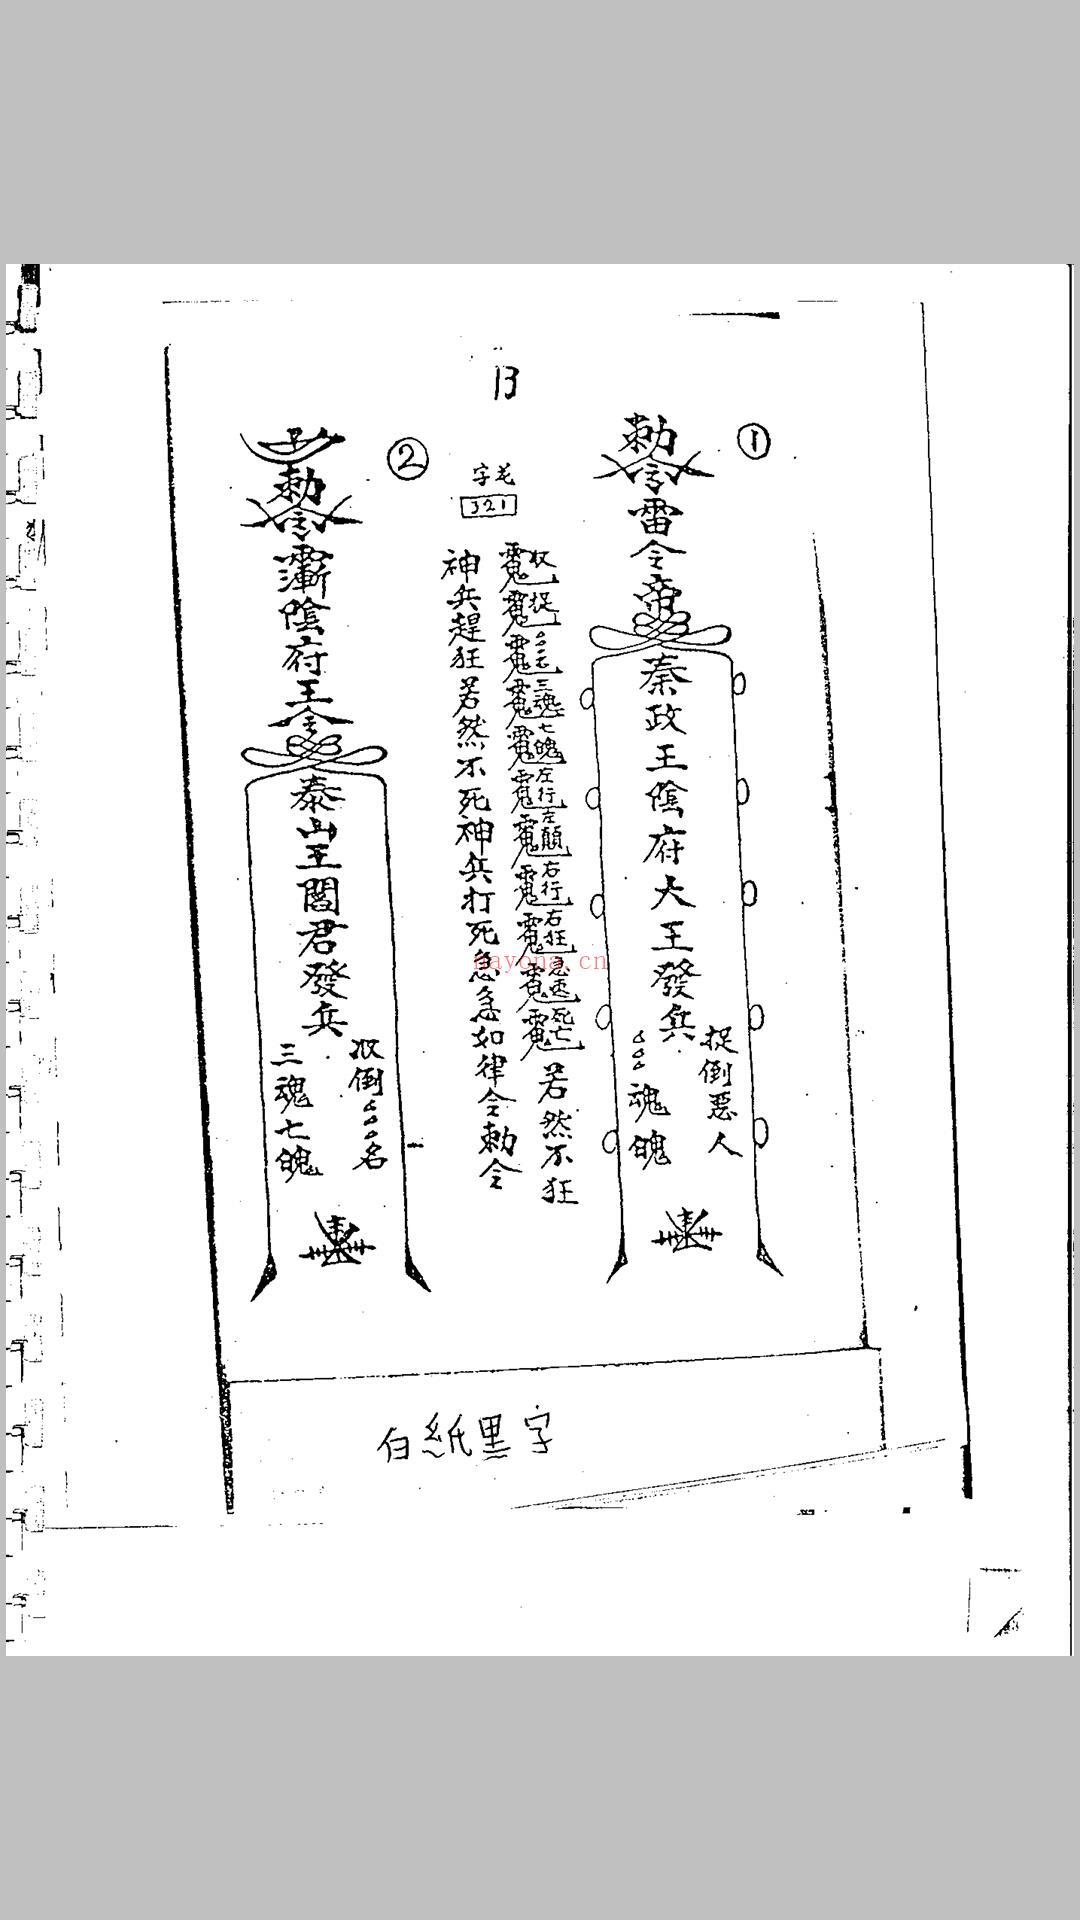 13
①
勅令雷令帝
秦政王陰府大王發兵
捉倒惡人
魂魄
字花
321
收捉 三魂七魄左行左顛右行右狂急速死亡
若然不狂
神兵趕狂若然不死神兵打死急急如律令勅令
②
勅令
陰府王令
泰山王閻君發兵
收倒 名
三魂七魄
nayona.cn
白紙黑字